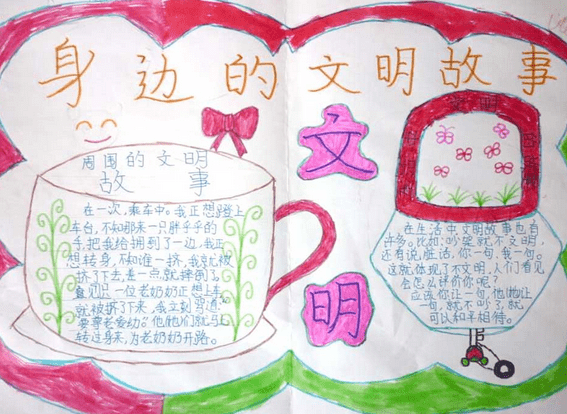 身边的文明故事
周围的文明
故事
在一次，乘车中。我正想蹬上
车台，不知那来一只胖乎乎的
手，把我给拥到了一边，我正
想转身，不知谁一挤，我就被
挤下了去，差一点就摔倒了。
看见一位老奶奶正想上车
就被挤了下来，我立刻写道：
要尊老爱幼。他她们就马上
转过身来，为老奶奶开路。
文
明
文明
在生活中文明故事也有
许多。比如：吵架就不文明，
还有说脏话，你一句，我一句。
这就体现了不文明，人们看见
会怎么评价你呢？
应该你让一句，他她让
一句，就不吵了，就
可以和平相待。